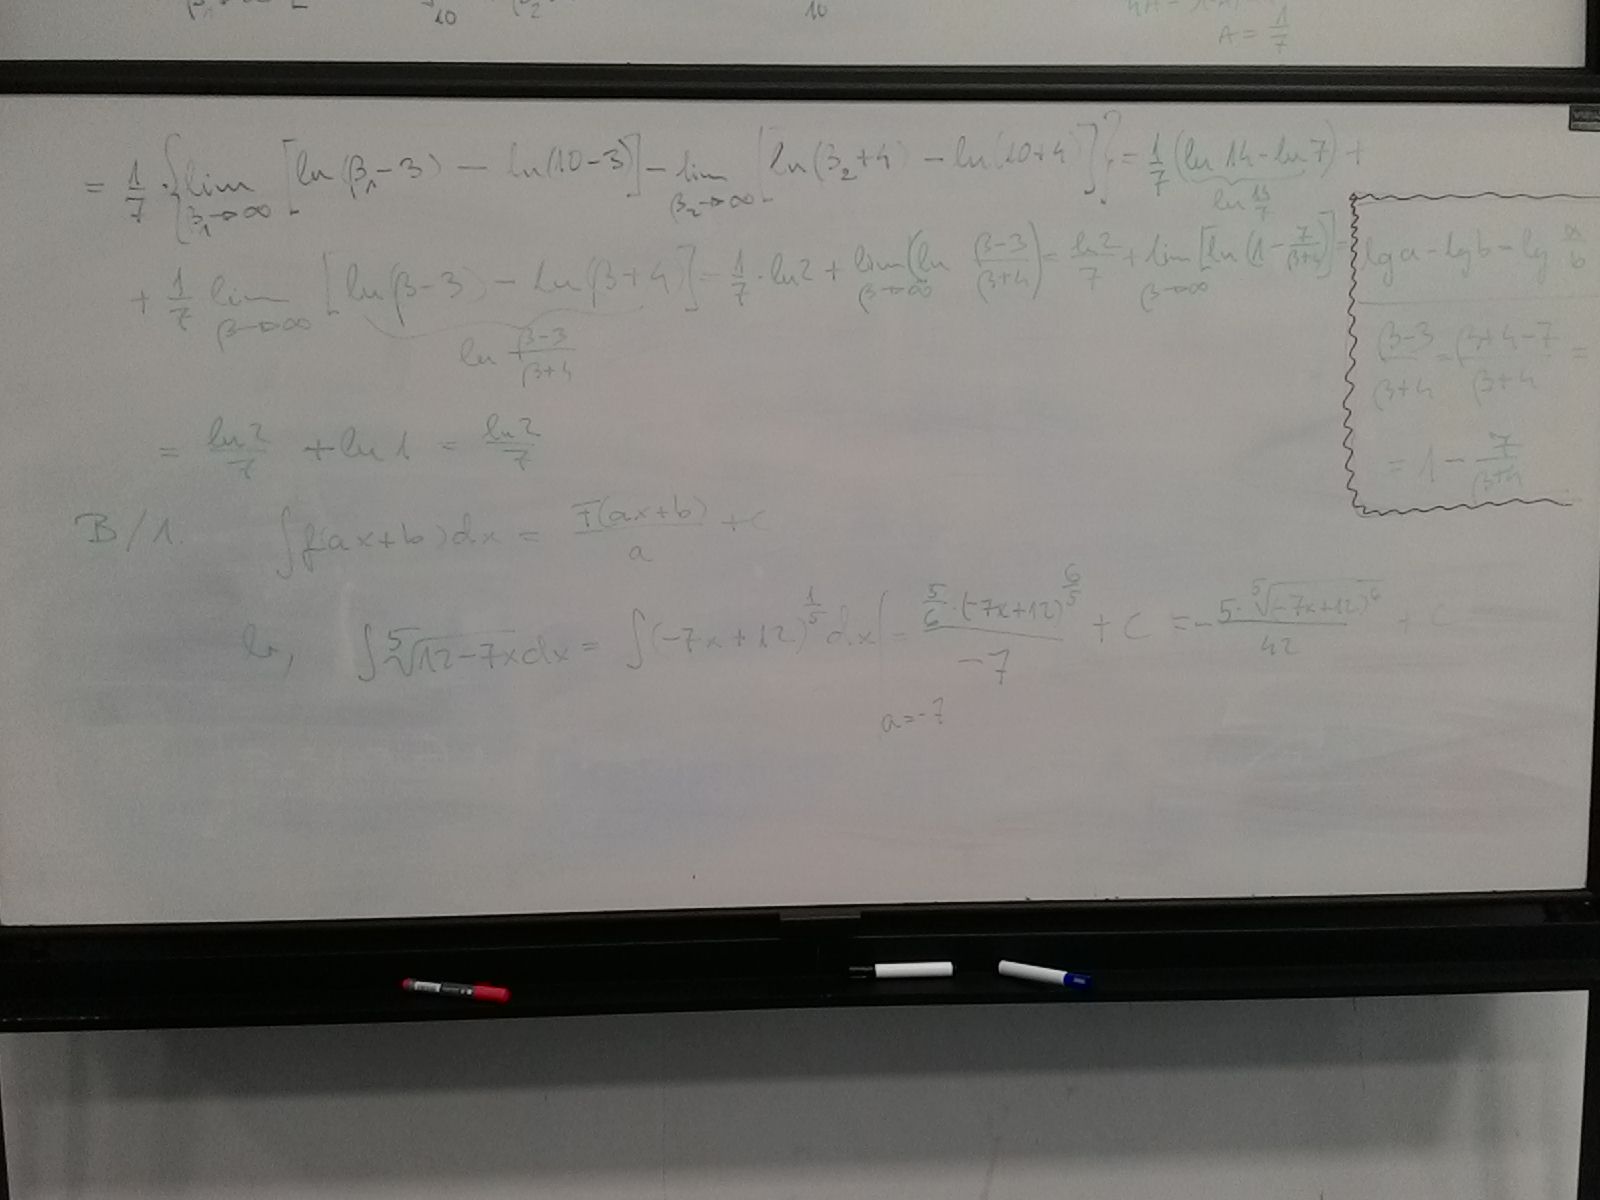 10 10
A = 1/7
= 1/7 · { lim β₁→∞ [ln(β₁-3) - ln(10-3)] - lim β₂→∞ [ln(β₂+4) - ln(10+4)] } = 1/7 (ln 14 - ln 7) +
ln 14/7
+ 1/7 lim β→∞ [ln(β-3) - ln(β+4)] = 1/7 · ln2 + lim β→∞ (ln (β-3)/(β+4) = ln2/7 + lim β→∞ [ln (1 - 7/(β+4))] =
ln (β-3)/(β+4)
lg a - lg b = lg a/b
(β-3)/(β+4) = (β+4-7)/(β+4) =
= 1 - 7/(β+4)
= ln2/7 + ln 1 = ln2/7
B/1. ∫f(ax+b)dx = F(ax+b)/a + c
b, ∫⁵√(12-7x) dx = ∫(-7x+12)^(1/5) dx = (5/6 · (-7x+12)^(6/5))/(-7) + C = - (5 · ⁵√((-7x+12)⁶))/42 + C
a = -7